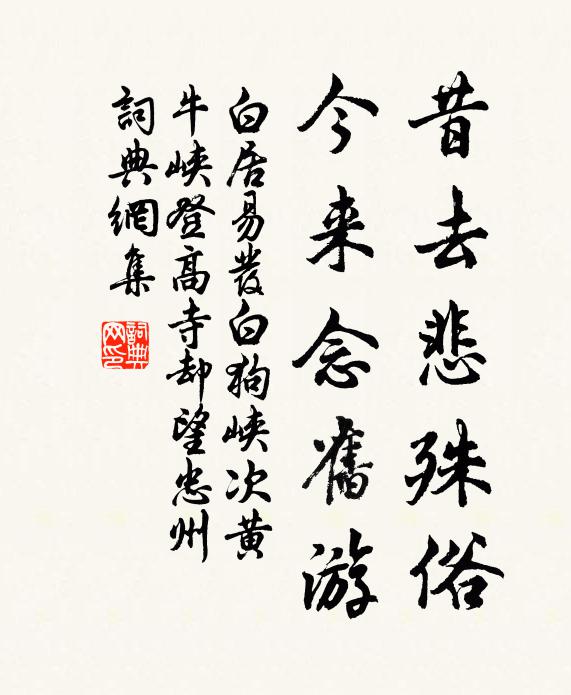 昔去悲殊俗
今来念舊游
白居易發白狗峽次黄
牛峽登高寺却望忠州
詞典網集
詞典网印